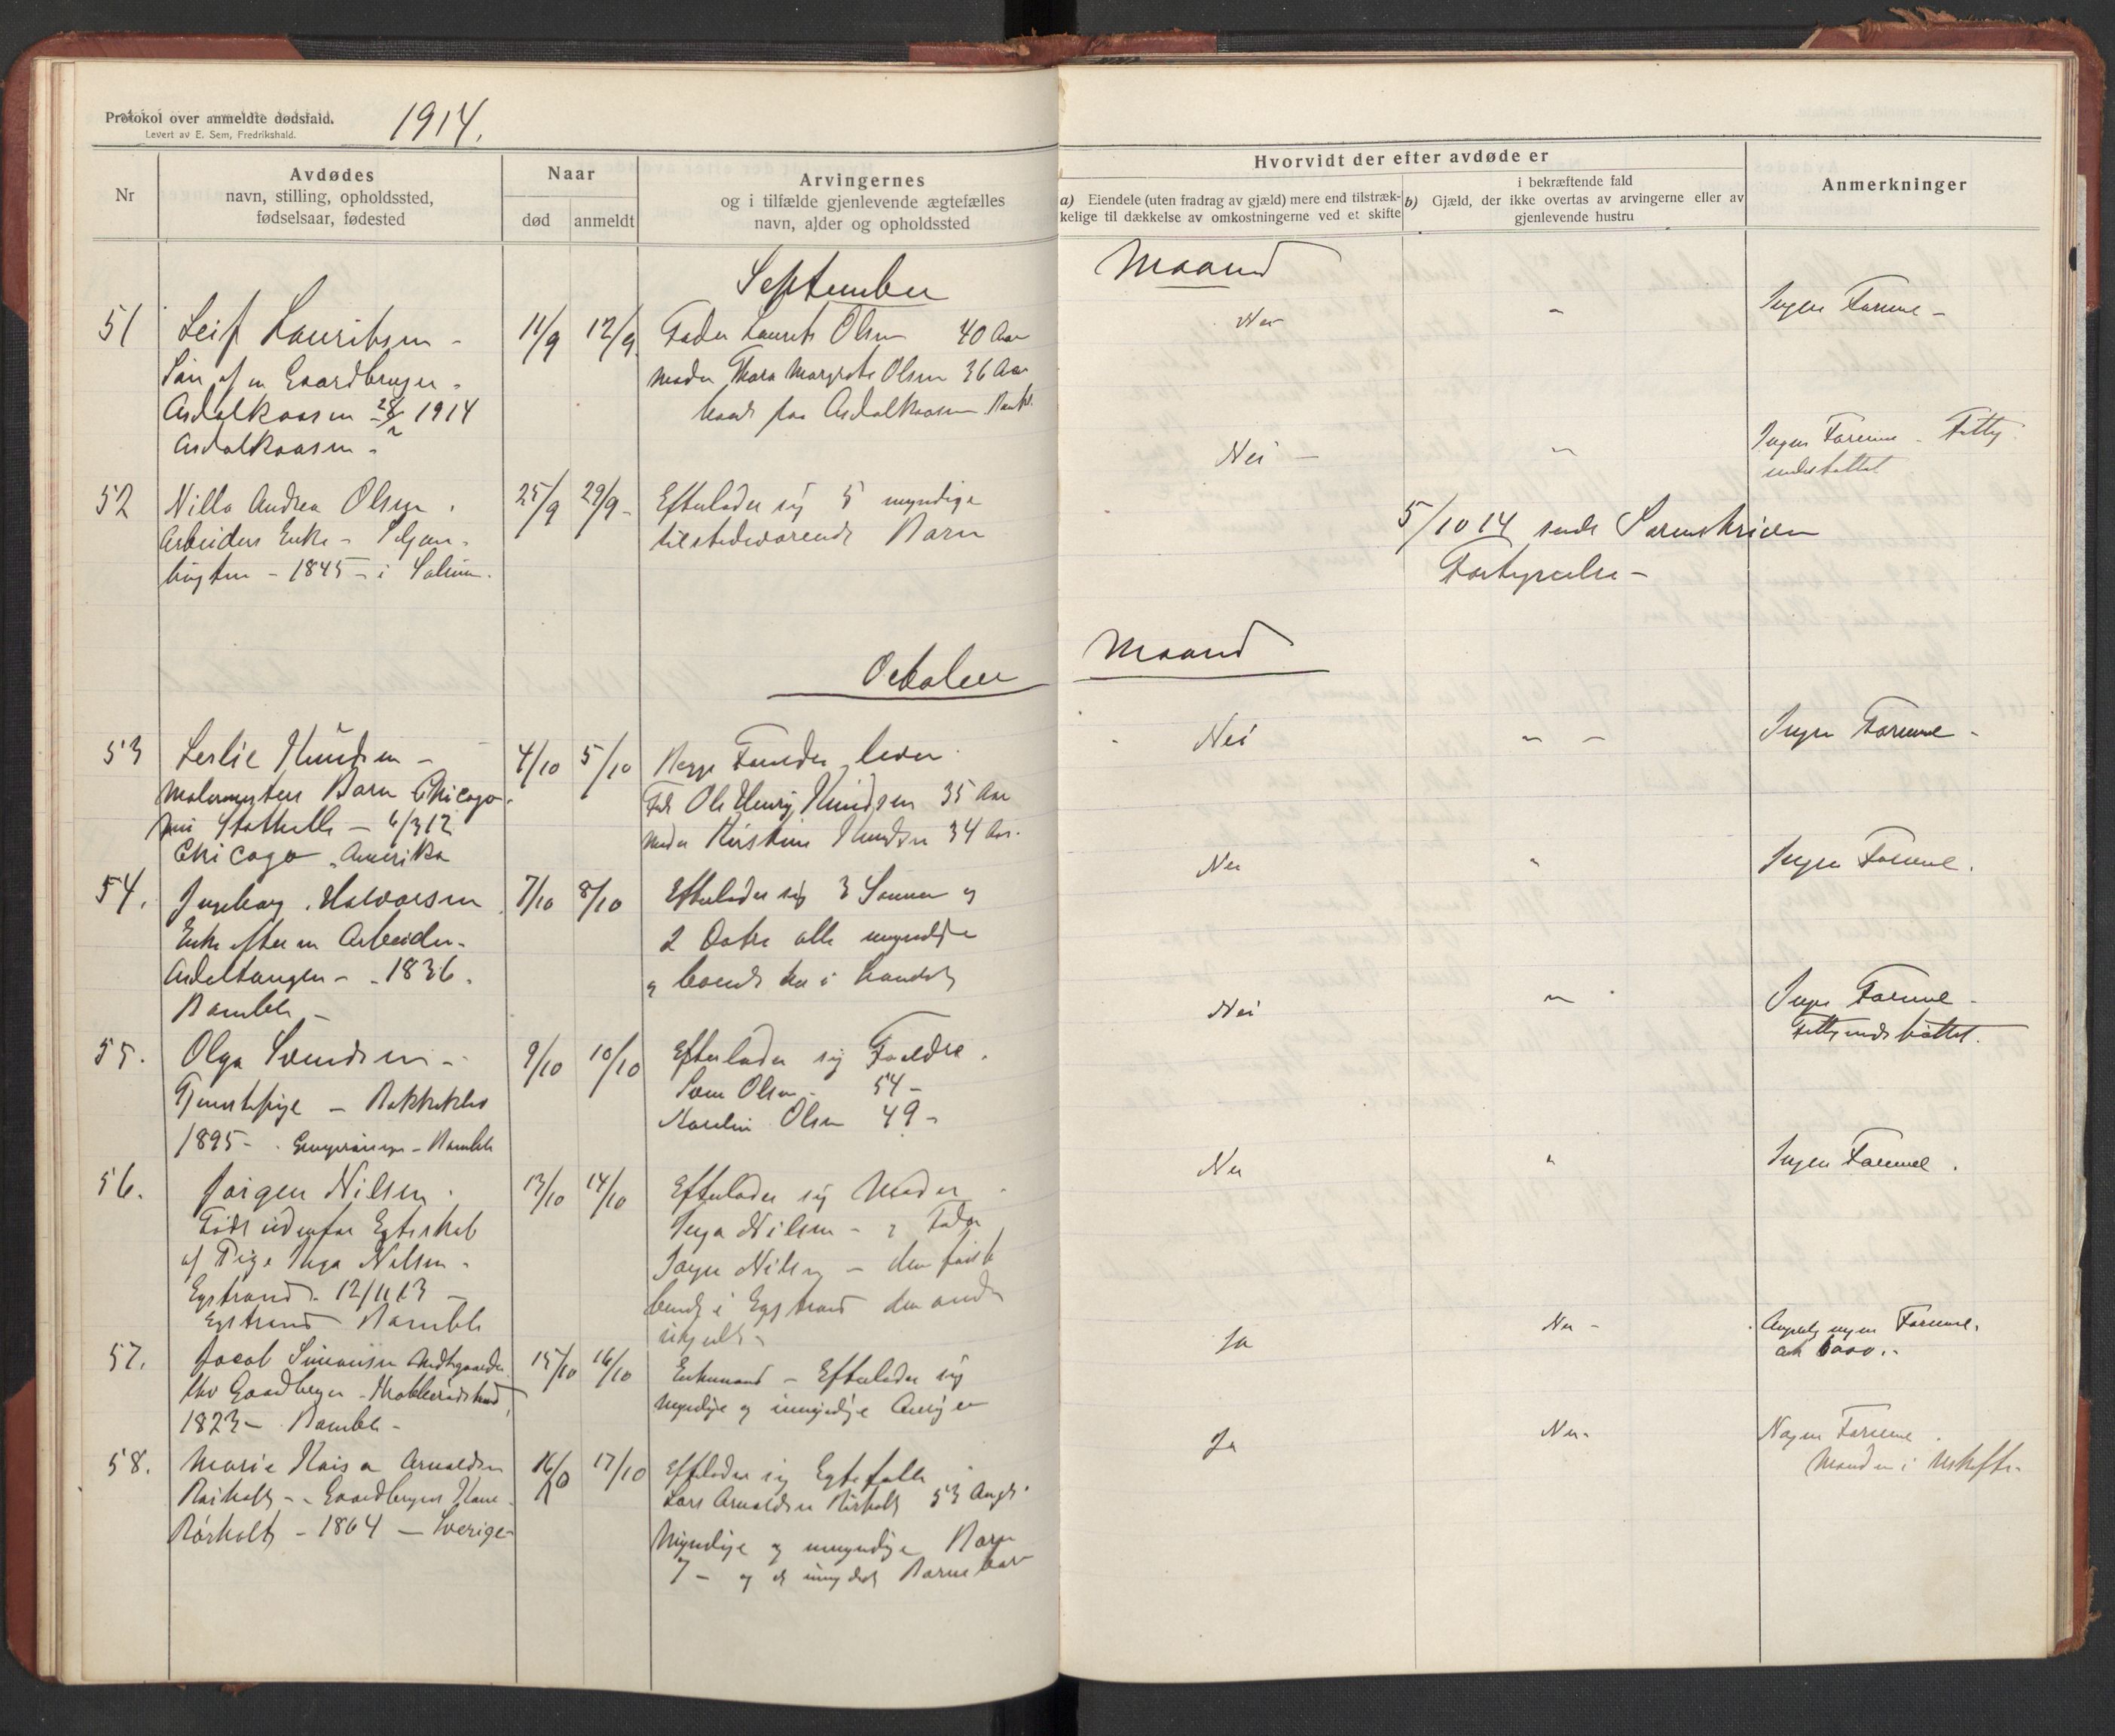 Protokol over anmeldte dødsfald.
Levert av E. Sem, Fredrikshald.
1914.
Nr
Avdødes
navn, stilling, opholdssted,
fødselsaar, fødested
Naar
død
anmeldt
Arvingernes
og i tilfælde gjenlevende ægtefælles
navn, alder og opholdssted
Hvorvidt der efter avdøde er
a) Eiendele (uten fradrag av gjæld) mere end tilstræk-
kelige til dækkelse av omkostningerne ved et skifte
i bekræftende fald
b) Gjæld, der ikke overtas av arvingerne eller av
gjenlevende hustru
Anmerkninger
September Maaned
51
Leif Lauritsen -
Søn af en Gaardbruger -
Asdalkaasen 28/2 1914
Asdalkaasen -
11/9 12/9
Fader Laurits Olsen 40 Aar
Moder Thora Margrete Olsen 36 Aar
paa Asdalkaasen
Nei
"
Ingen Formue -
52
Nilla Andrea Olsen
Arbeiders Enke -
bugten - 1845 - i
25/9 29/9 -
Efterlader sig 5 myndige
tilstedeværende Børn
Nei -
"
Ingen Formue -
understøttet
5/10 14 sendt Sorenskriveren
October Maaned
53
Leslie Knudsen -
Malermesters Barn Chicago
Stathelle - 6/3 12
Chicago, Amerika
4/10 5/10
Begge Forældre lever
Fader Ole Henry Knudsen 35 Aar
Moder Kirstine Knudsen 34 Aar.
Nei
" -
Ingen Formue -
54.
Ingeborg Halvorsen
Enke efter en Arbeider -
Asdaltangen - 1836.
Bamble -
7/10 8/10
Efterlader sig 3 Sønner og
2 Døtre alle myndige
og boende her i Landet
Nei
"
Ingen Formue.
55.
Olga Svendsen -
Tjenestepige -
1895 - - Bamble
9/10 10/10
Efterlader sig Forældre.
Sven Olsen - 54 -
Olsen 49 -
Nei
"
Ingen Formue -
Fattigunderstøttet.
56.
Jørgen Nilsen
Født udenfor Egteskab
af Pige Inga Nilsen -
Egstrand - 12/11 13 -
Egstrand Bamble
13/10 14/10
Efterlader sig Moder
Inga Nilsen - og Fader
Nilsen - den første
boende i Egstrand den anden
Nei
"
Ingen Formue.
57.
Jacob Simonsen
Gaardbruger -
1823 - Bamble -
15/10 16/10
Enkemand - Efterlader sig
Myndige og umyndige Arvinger
Ja
Nei -
Formue.
58.
Marie Arnoldsen
Rørholt - Gaardbrugers Kone -
Rørholt - 1864 - Sverige -
16/10 17/10
Efterlader sig Egtefælle
Lars Arnoldsen Rørholt 53
Myndige og umyndige Børn
7 - og
Ja
Nei -
Nogen Formue
Manden i Uskifte -